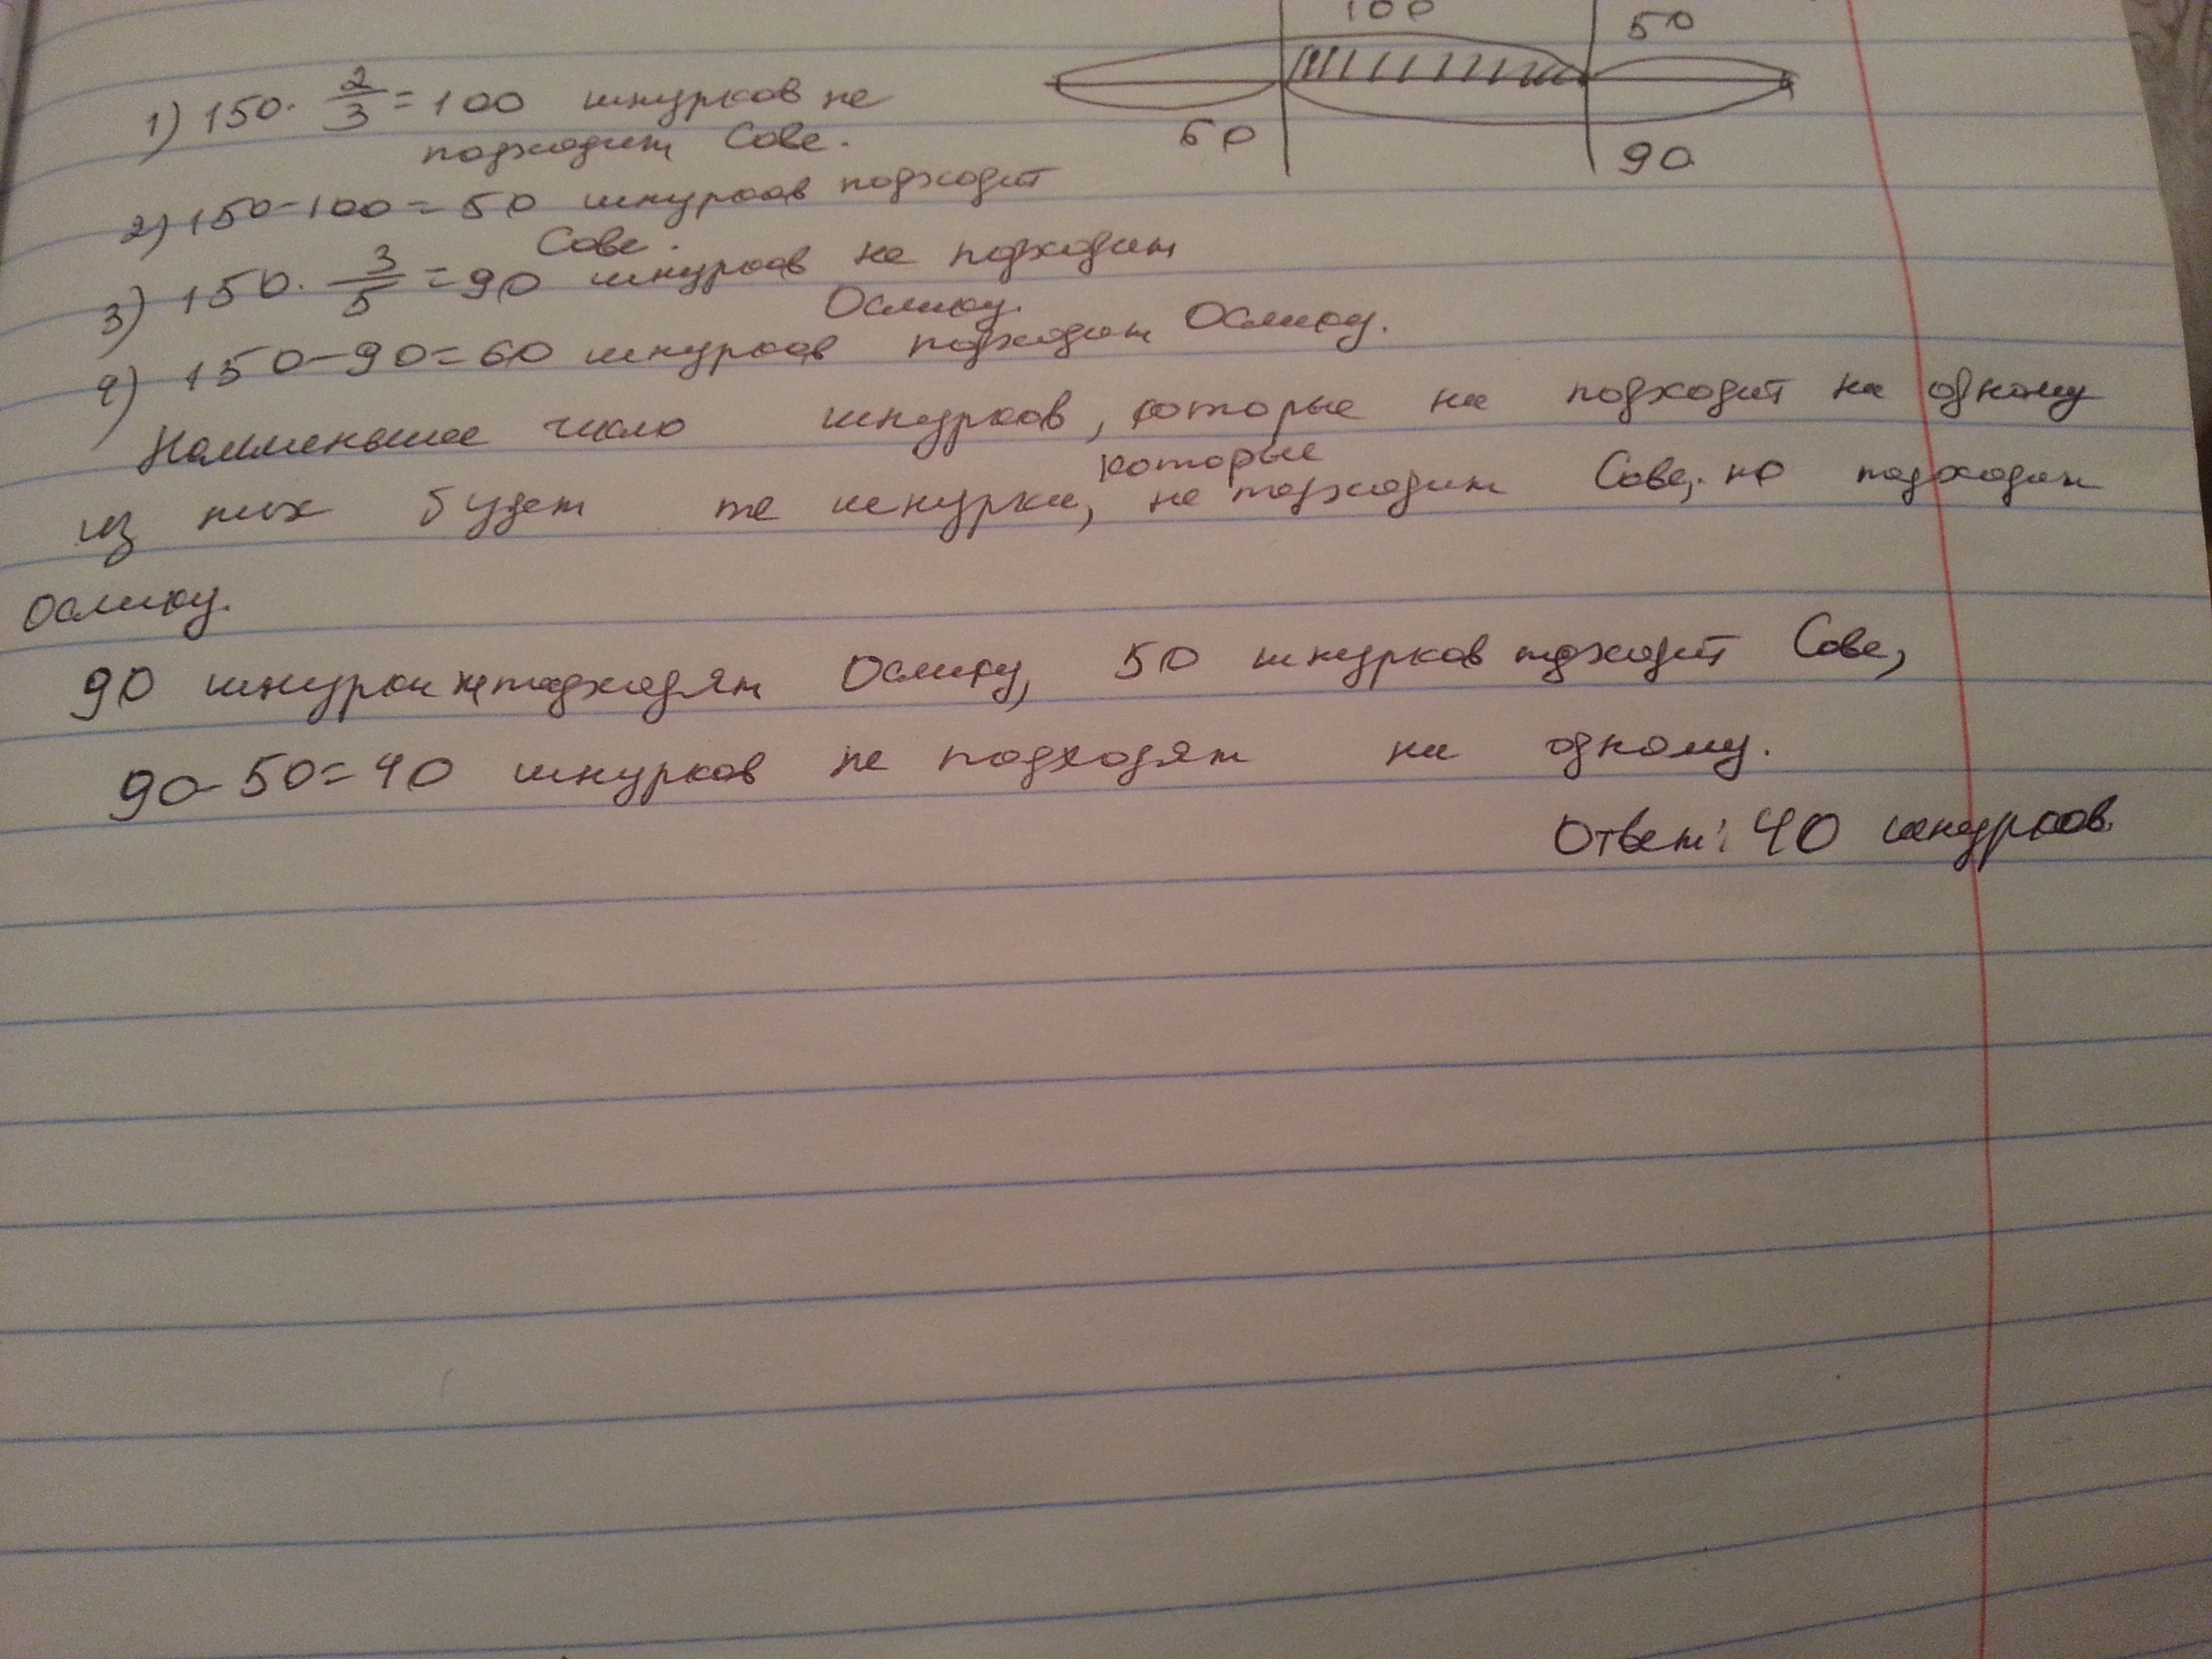 100
50
60
90
1) 150 · 2/3 = 100 шнурков не
подходит Сове.
2) 150-100=50 шнурков подходит
Сове.
3) 150 · 3/5 = 90 шнурков не подходит
Ослику.
4) 150-90=60 шнурков подходит Ослику.
Наименьшее число шнурков, которые ни подходит ни одному
которые
из них будет те шнурки, не подходит Сове, но подходит
Ослику.
90 шнурки не подходят Ослику, 50 шнурков подходит Сове,
90-50=40 шнурков не подходят ни одному.
Ответ: 40 шнурков